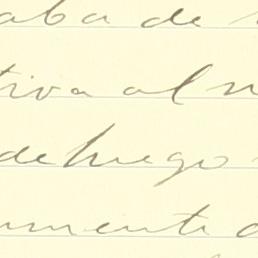 aba de
tiva al n
de luego
mente d